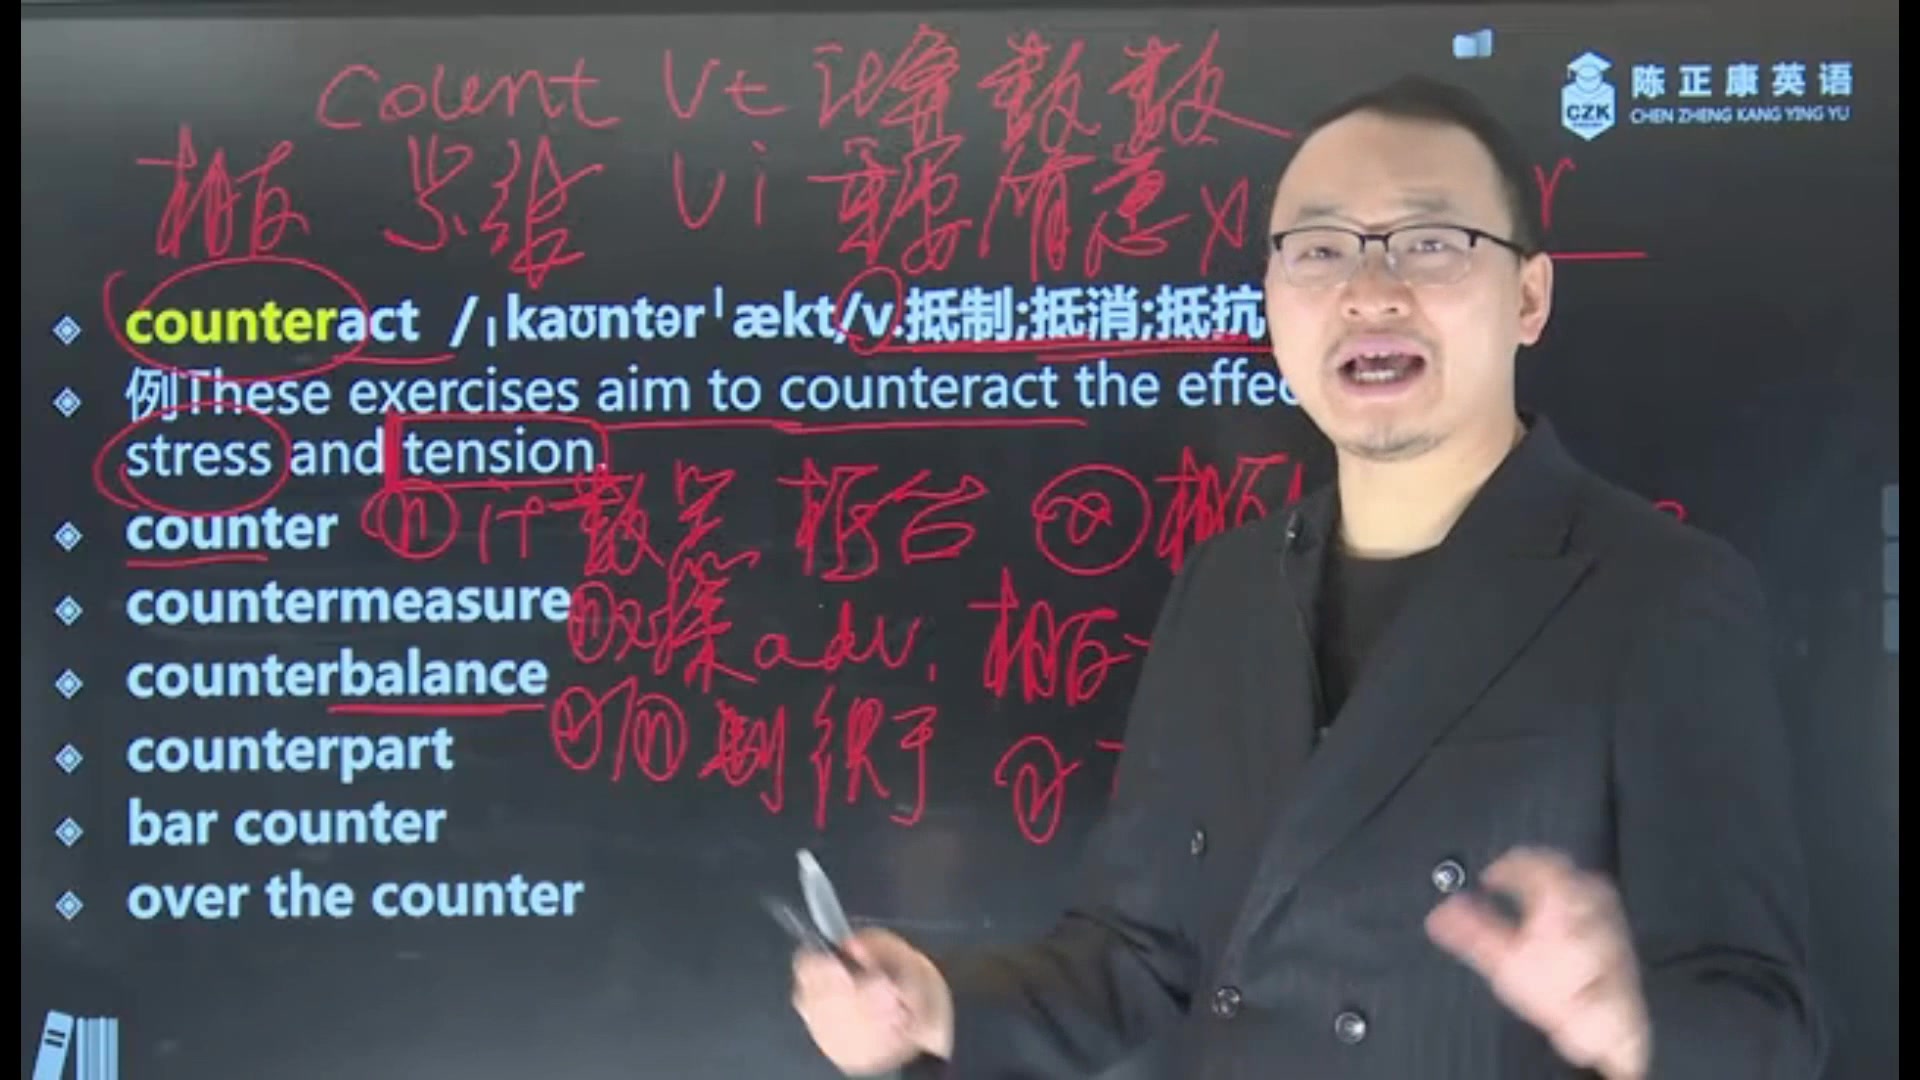 陈正康英语
CZK
CHEN ZHENG KANG YING YU
count vt 计算 数数
相反 总结 vi 重要 有意义
counteract /ˌkaʊntərˈækt/v.抵制;抵消;抵抗
例These exercises aim to counteract the effec
stress and tension.
counter n 计数器 柜台 v 相反
countermeasure n 对策 adv. 相反
counterbalance
counterpart v/n
bar counter
over the counter